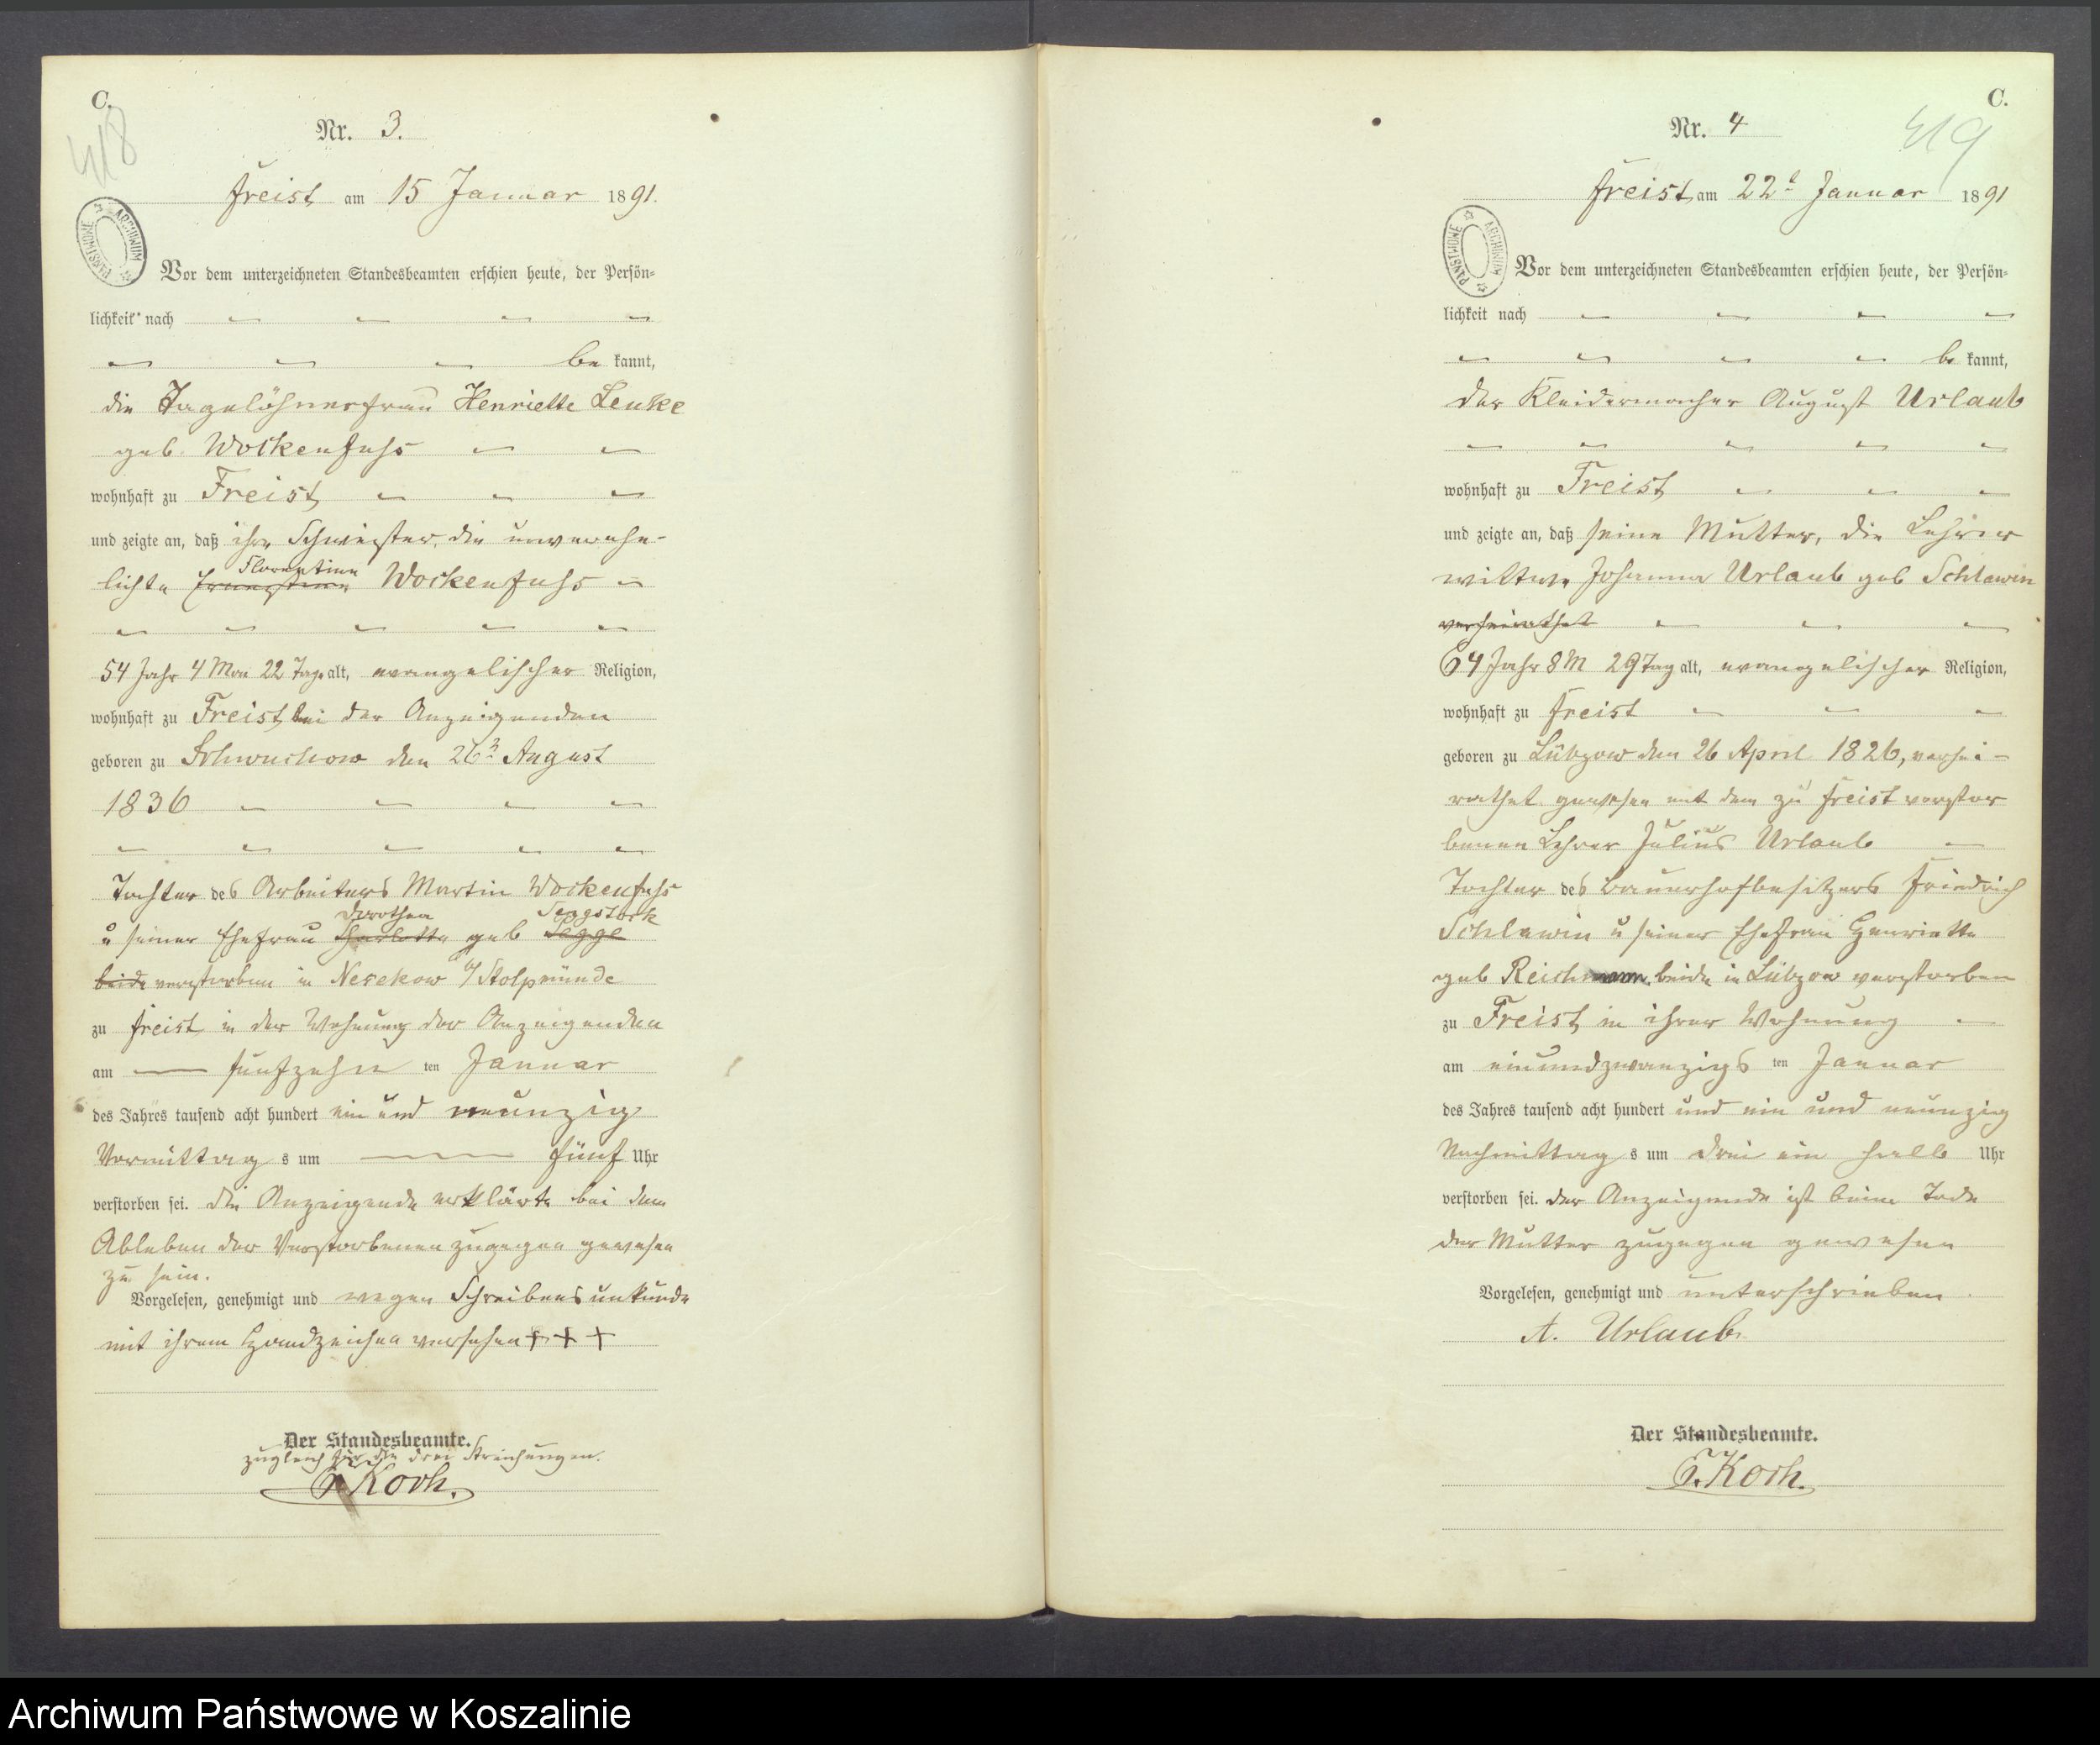 C.
418
Nr. 3.
Freist am 15 Januar 1891.
ARCHIWUM PAŃSTWOWE
Vor dem unterzeichneten Standesbeamten erschien heute, der Persön-
lichkeit nach
be kannt,
die Tagelöhnerfrau Henriette Lenke
geb. Wockenfuhs
wohnhaft zu Freist
und zeigte an, daß ihre Schwester, die unverehe-
Florentine
lichte Ernestine Wockenfuhs
54 Jahr 4 Mon 22 Tage alt, evangelischer Religion,
wohnhaft zu Freist bei der Anzeigenden
geboren zu Schwuchow den 26 August
1836
Tochter des Arbeiters Martin Wockenfuhs
Dorothea Sengstock
u seiner Ehefrau Charlotte geb
beide verstorben in Nesekow b/ Stolpmünde
zu Freist in der Wohnung der Anzeigenden
am fünfzehn ten Januar
des Jahres tausend acht hundert ein und neunzig
Vormittag s um fünf Uhr
verstorben sei. Die Anzeigende erklärte bei dem
Ableben der Verstorbenen zugegen gewesen
zu sein.
Vorgelesen, genehmigt und wegen Schreibensunkunde
mit ihrem Handzeichen versehen + + +
Der Standesbeamte.
zugleich für die drei Streichungen.
Koch.
C.
419
Nr. 4
Freist am 22t Januar 1891
ARCHIWUM PAŃSTWOWE
Vor dem unterzeichneten Standesbeamten erschien heute, der Persön-
lichkeit nach
be kannt,
der Kleidermacher August Urlaub
wohnhaft zu Freist
und zeigte an, daß seine Mutter, die Lehrer
wittwe Johanna Urlaub geb Schlawin
verheirathet
64 Jahr 8 M 29 Tag alt, evangelischer Religion,
wohnhaft zu Freist
geboren zu Lübzow den 26 April 1826, verhei-
rathet gewesen mit dem zu Freist verstor
benen Lehrer Julius Urlaub
Tochter des Bauerhofbesitzers Friedrich
Schlawin u seiner Ehefrau Henriette
geb Reichmann beide in Lübzow verstorben
zu Freist in ihrer Wohnung
am einundzwanzigs ten Januar
des Jahres tausend acht hundert und ein und neunzig
Nachmittag s um drei ein halb Uhr
verstorben sei. Der Anzeigende ist beim Tode
der Mutter zugegen gewesen
Vorgelesen, genehmigt und unterschrieben.
A. Urlaub.
Der Standesbeamte.
Koch.
Archiwum Państwowe w Koszalinie